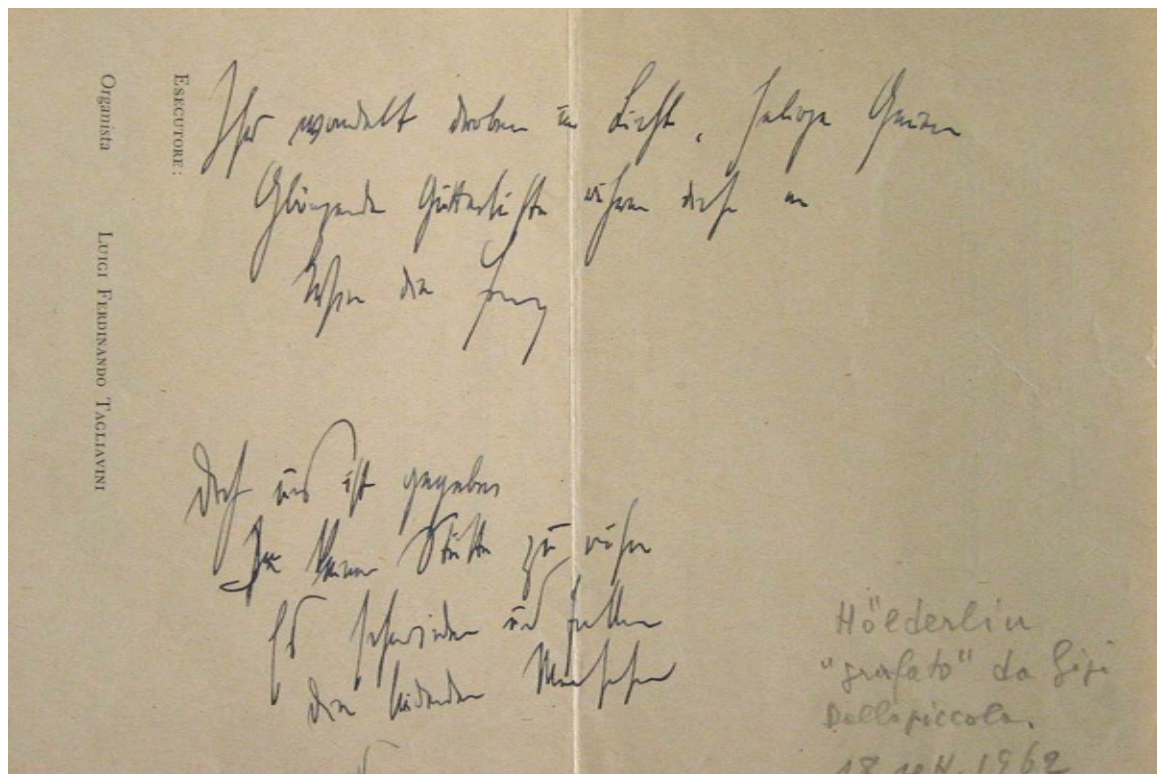 ESECUTORE:
Organista LUIGI FERDINANDO TAGLIAVINI
Ihr wandelt droben im Licht, selige Genien
Glänzende Götterlüfte rühren
die
Doch uns ist gegeben
keiner Stätte zu ruhn
Es schwinden und fallen
die leidenden Menschen
Hölderlin
"grafato" da Gigi
Dallapiccola.
18 sett. 1962